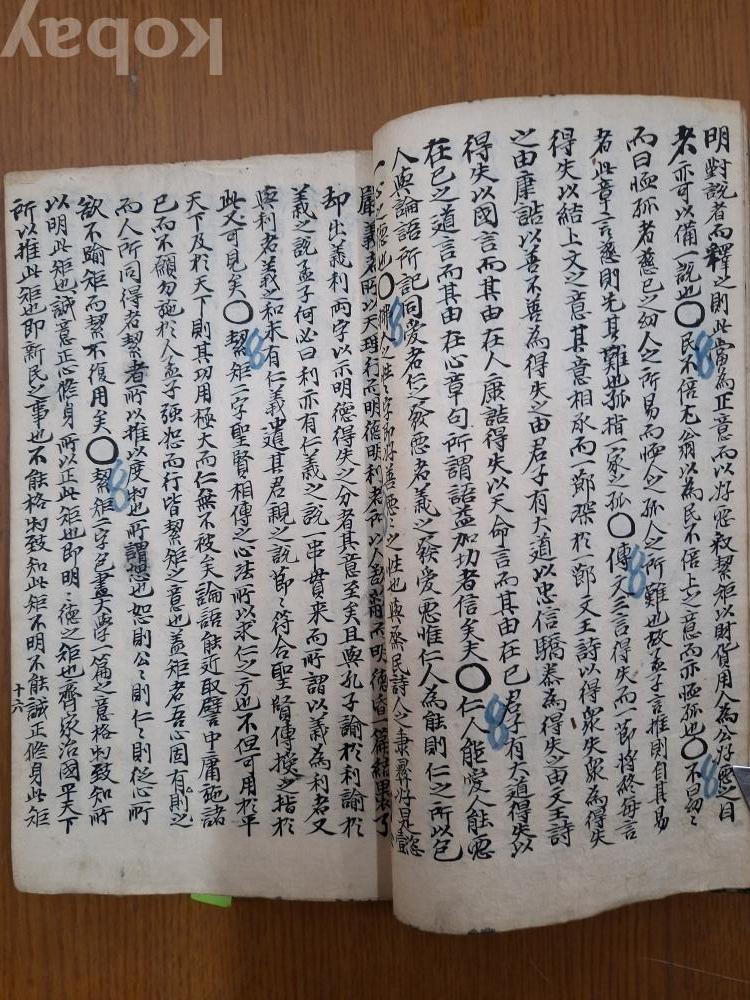 明對說者而釋之則此當為正意而以好惡叙絜矩以財貨用人為公好惡之目
者亦可以備一說也〇民不倍尤翁以為民不倍上之意而亦恤孤也〇不曰幼幼
而曰恤孤者慈己之幼人之所易而恤人之孤人之所難也故孟子言推則自其易
者此章言慈則先其難也孤指一家之孤〇傳文三言得失而一節將終每言
得失以結上文之意其意相承而一節深於一節文王詩以得衆失衆為得失
之由康誥以善不善為得失之由君子有大道以忠信驕泰為得失之由文王詩
得失以國言而其由在人康誥得失以天命言而其由在己君子有大道得失以
在己之道言而其由在心章句所謂語益加切者信矣夫〇仁人能愛人能惡
人與論語所記同愛者仁之發惡者義之發愛惡惟仁人為能則仁之所以包
義之惡也〇拂人之性之字即好善惡惡之性也與烝民詩人之秉彛好是懿
嚴義者所以天理行而明德明利者所以人欲肆而明德昏一篇結果了
却出義利兩字以示明德得失之分者其意至矣且與孔子論於利論於
義之說孟子何必曰利亦有仁義之說一串貫來而所謂以義為利者又
與利者義之和未有仁義遺其君親之說節節符合聖賢傳授之指於
此又可見矣〇絜矩二字聖賢相傳之心法所以求仁之方也不但可用於平
天下及於天下則其功用極大而仁無不被矣論語能近取譬中庸施諸
己而不願勿施於人孟子強恕而行皆絜矩之意也盖矩者吾心固有之則
而人所同得者絜者所以推以度物也所謂恕也恕則公公則仁仁則從心所
欲不踰矩而絜不復用矣〇絜矩二字包盡大學一篇之意格物致知所
以明此矩也誠意正心脩身所以正此矩也即明明德之矩也齊家治國平天下
所以推此矩也即新民之事也不能格物致知此矩不明不能誠正脩身此矩
十六
kobay